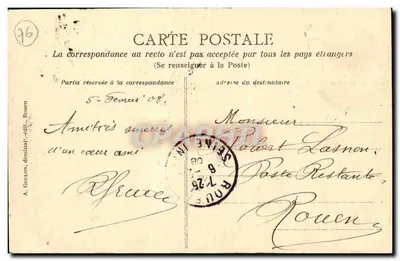 76
CARTE POSTALE
La correspondance au recto n'est pas acceptée par tous les pays étrangers
(Se renseigner à la Poste)
Partie réservée à la correspondance
Adresse du destinataire
5 Février 08.
Amitiés sincères
d'un cœur ami
Monsieur
Robert Lasnon
Poste Restante
Rouen
ROUEN
7-25
SEINE IN
A. Goulon, dessinat.-édit., Rouen